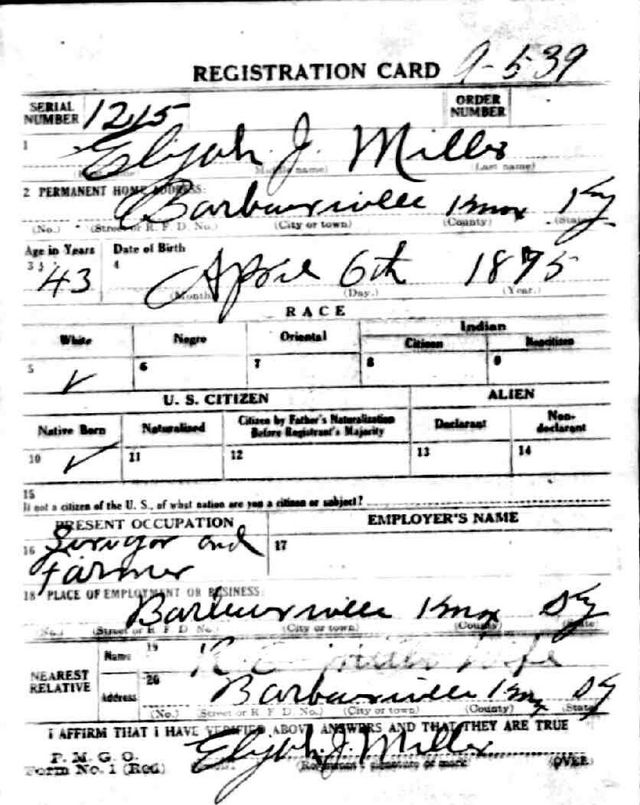 REGISTRATION CARD 9-539
SERIAL NUMBER 1215 ORDER NUMBER
1 Elijah J. Miller
(Middle name) (Last name)
2 PERMANENT HOME ADDRESS:
Barbourville Knox Ky
(No.) (Street or R. F. D. No.) (City or town) (County) (State)
Age in Years Date of Birth
3 43 4 April 6th 1875
(Month) (Day.) (Year.)
RACE
White Negro Oriental Indian
Citizen Noncitizen
5 ✓ 6 7 8 9
U. S. CITIZEN ALIEN
Native Born Naturalized Citizen by Father's Naturalization Before Registrant's Majority Declarant Non-declarant
10 ✓ 11 12 13 14
15
If not a citizen of the U. S., of what nation are you a citizen or subject?
PRESENT OCCUPATION EMPLOYER'S NAME
16 Surveyor and 17
Farmer
18 PLACE OF EMPLOYMENT OR BUSINESS:
Barbourville Knox Ky
(No.) (Street or R. F. D. No.) (City or town) (County) (State)
NEAREST RELATIVE Name 19 Miller Wife
Address 20 Barbourville Knox Ky
(No.) (Street or R. F. D. No.) (City or town) (County) (State)
I AFFIRM THAT I HAVE VERIFIED ABOVE ANSWERS AND THAT THEY ARE TRUE
P. M. G. O.
Form No. 1 (Red) Elijah J. Miller
(Registrant's signature or mark) (OVER)